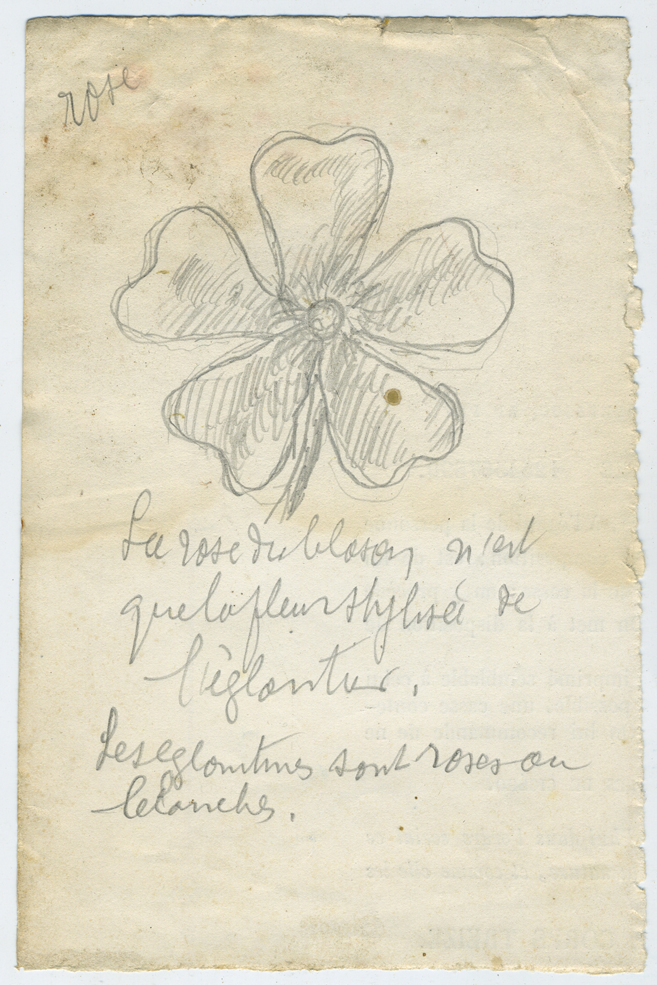 rose
La rose du blason n'est
que la fleur stylisée de
l'églantier.
Les eglantines sont roses ou
blanches.